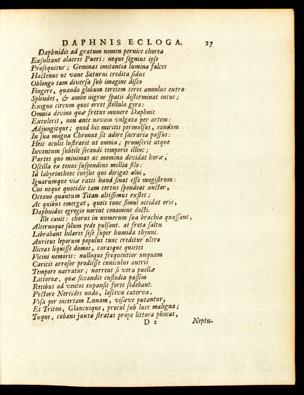 DAPHNIS ECLOGA. 27
Daphnidis ad gratum nomen pernice chorea
Exsultant alacres Pueri: neque segnius ipse
Prosequitur; Geminas imitantia lumina falces
Hactenus ut vane Saturni credita sidus
Oblongo tam diversa sub imagine disco
Fingere, quando globum teretem teret annulus extra
Splendet, & ambo nigror spatii determinat intus;
Exiguo circum quos erret stellula gyro:
Omnia divino quæ fretus munere Daphnis
Extulerit, non ante novam vulgata per artem:
Adjungitque; quod his meritis permissus, eandem
In sua magna Chronus sit adire sacraria passus:
Heic oculis lustrarit ut omnia; promserit atque
Inventum subtile secandi temporis illinc;
Partes quo minimas ac momina dividat horæ,
Oscilla ex tenui suspendens mollia filo:
Id labyrintheos cursus qui dirigat alni,
Ignarumque viæ ratis haud sinat esse magistrum:
Cui neque quotidie tam certus spondeat auctor,
Oceano quantum Titan altissimus exstet;
Ac quibus emergat, queis tunc simul occidat oris,
Daphnidas egregio norint conamine docti.
Ille canit: chorus in numerum sua brachia quassant,
Alternoque solum pede pulsant. at freta saltu
Librabant hilares sese super humida thynni.
Auritus leporum populus tunc creditur ultro
Iliceas liquisse domos, carasque quietes
Vicini nemoris: nulloque frequentior unquam
Caricis arrosæ prodisse cuniculus antris
Tempore narratur; narrent si vera puellæ
Littoreæ, quæ siccandis custodia passim
Retibus ad ventos expansis forte sedebant.
Pectore Nereides nudo, lasciva caterva,
Visa per incertam Lunam, visæve putantur,
Et Triton, Glaucusque, procul sub luce maligna;
Tuque, cubans juxta stratas prope littora phocas,
D 2 Neptu-